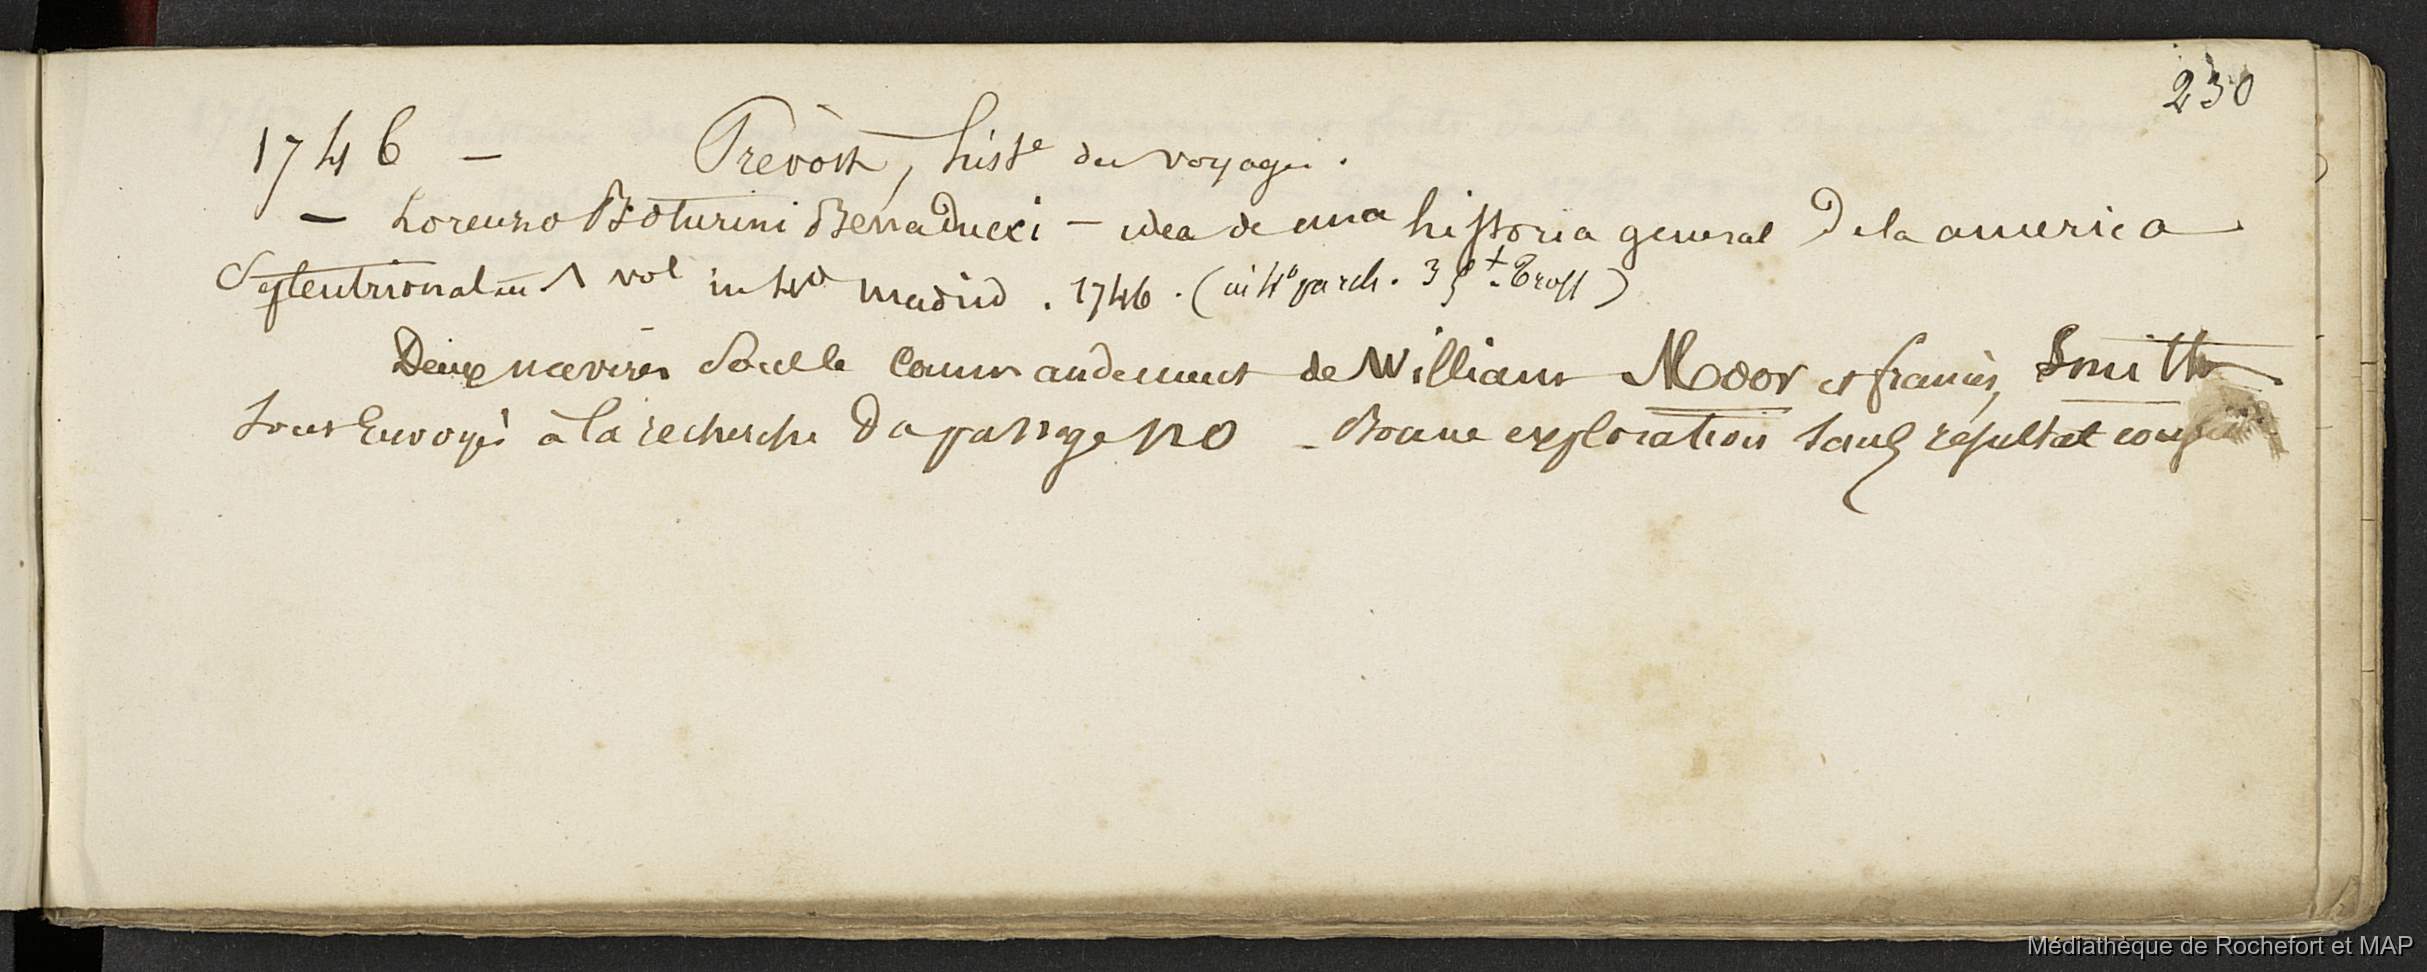 230
1746 – Prévost, hist.e des voyages.
– Lorenzo Boturini Benaducci – idea de una historia general de la america
Septentrional en 1 vol in 4º Madrid. 1746. (in 4º parch. 35 f. Tross)
Deux navires sous le commandement de William Moor et francis Smith
sont Envoyés à la recherche du passage NO – Bonne exploration sans résultat
Médiathèque de Rochefort et MAP